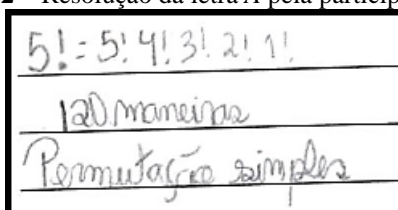 2 Resolução da letra A pela particip
5! = 5! 4! 3! 2! 1!
120 maneiras
Permutação simples